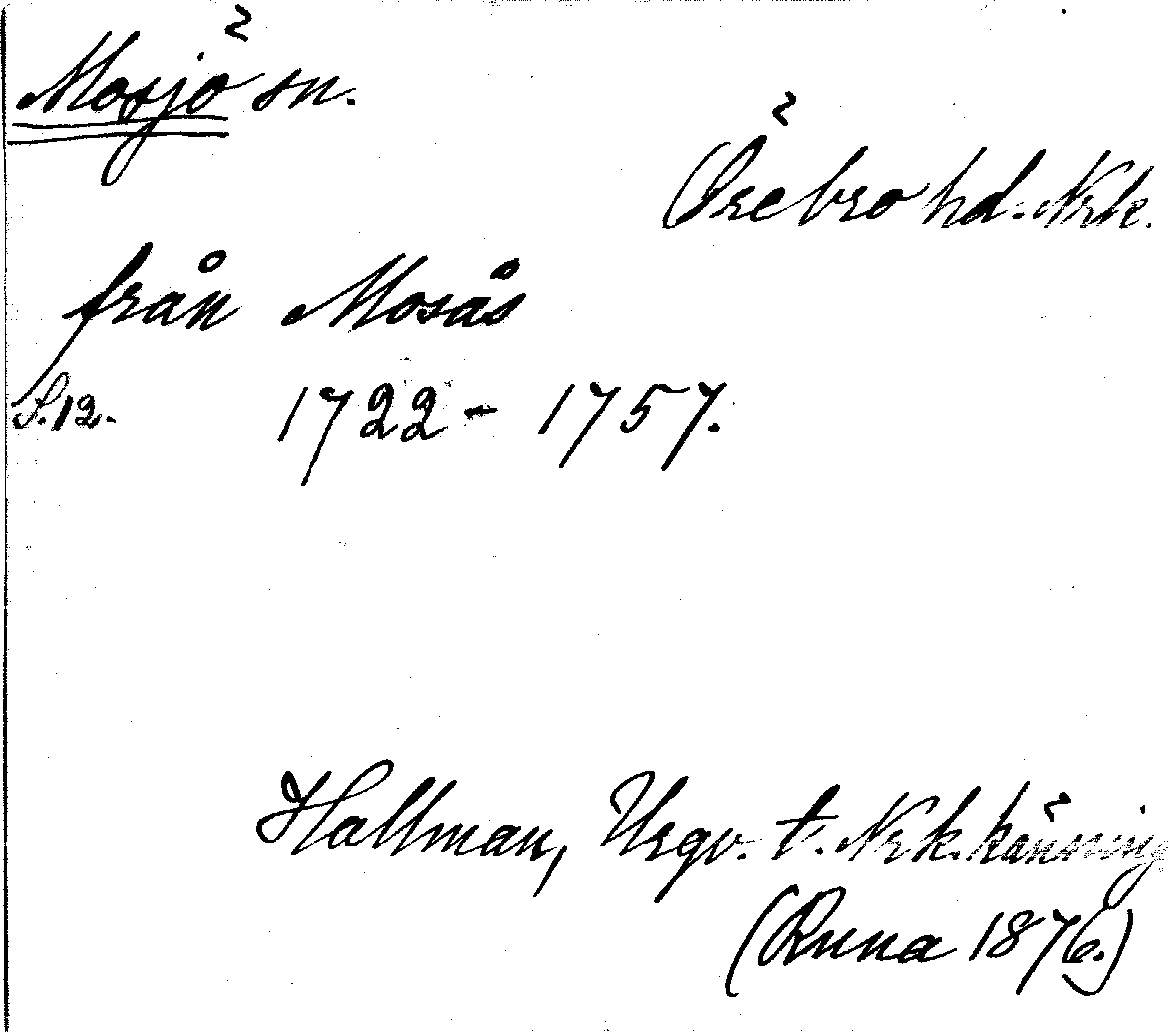 Mosjö sn.
Örebro hd. Nrk.
från Mosås
S. 12. 1722 - 1757.
Hallman, Urgv. t. Nrk. känning
(Runa 1876.)